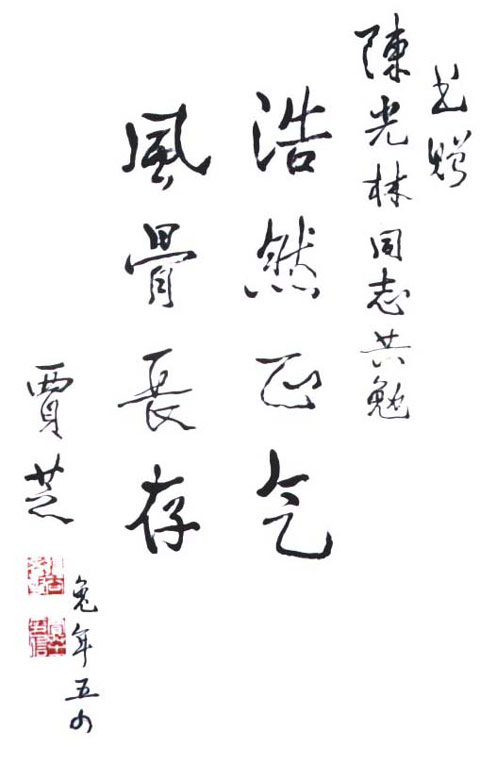 书赠
陳光林同志共勉
浩然正气
風骨長存
賈芝
兔年五月